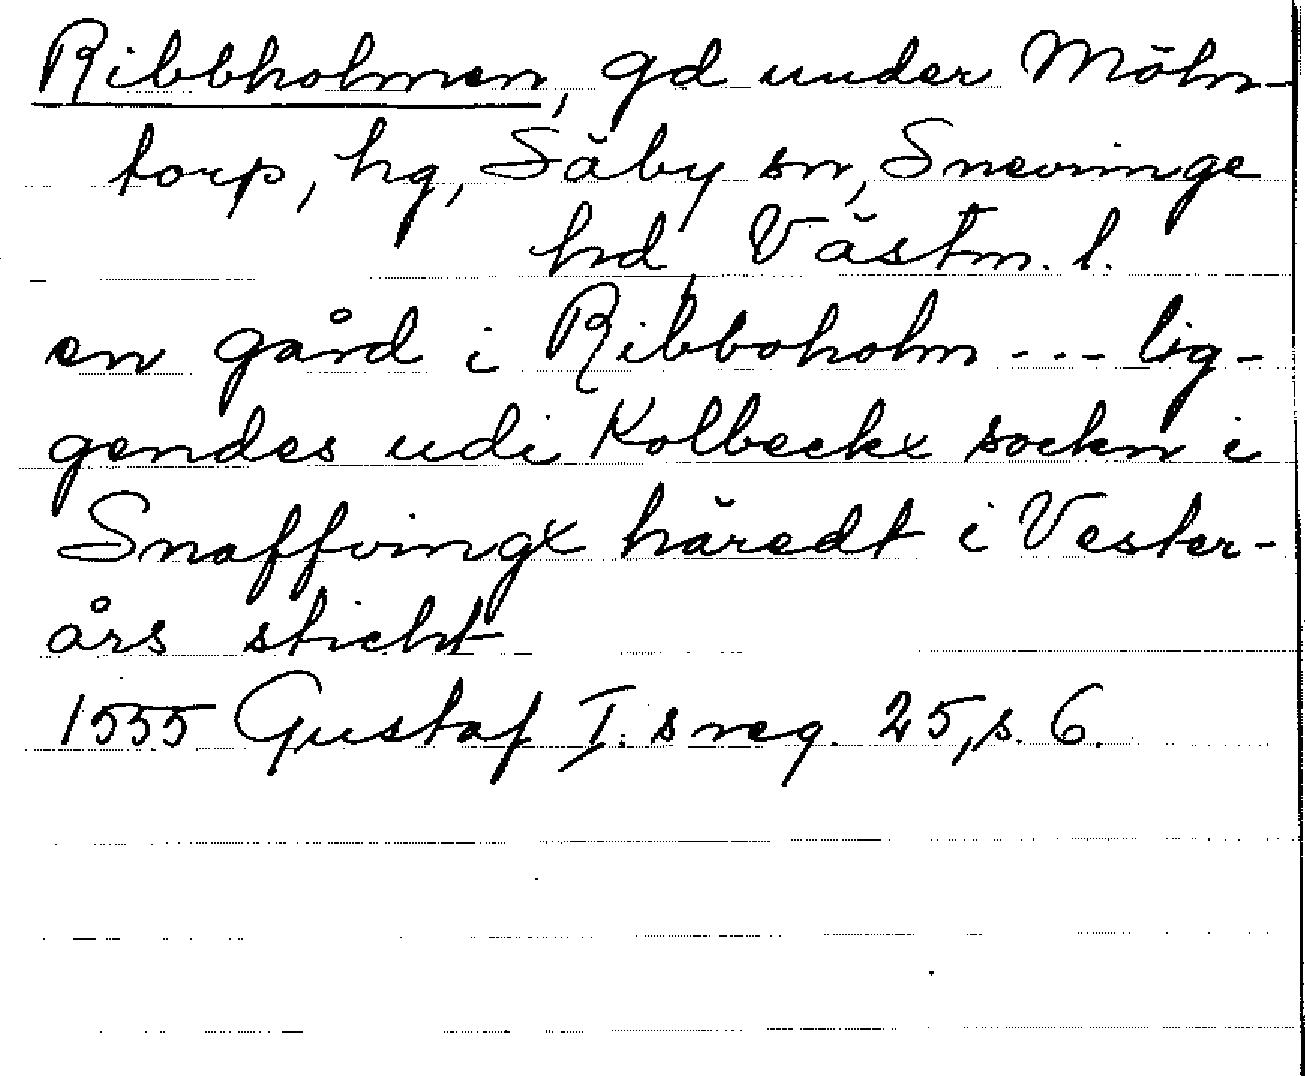 Ribbholmen, gd under Möln-
torp, hg, Säby sn, Snevringe
hd, Västm. l.
en gård i Ribboholm --- lig-
gendes udi Kolbeckx sockn i
Snaffvingx häredt i Vester-
års sticht
1555 Gustaf I:s reg. 25, s. 6.